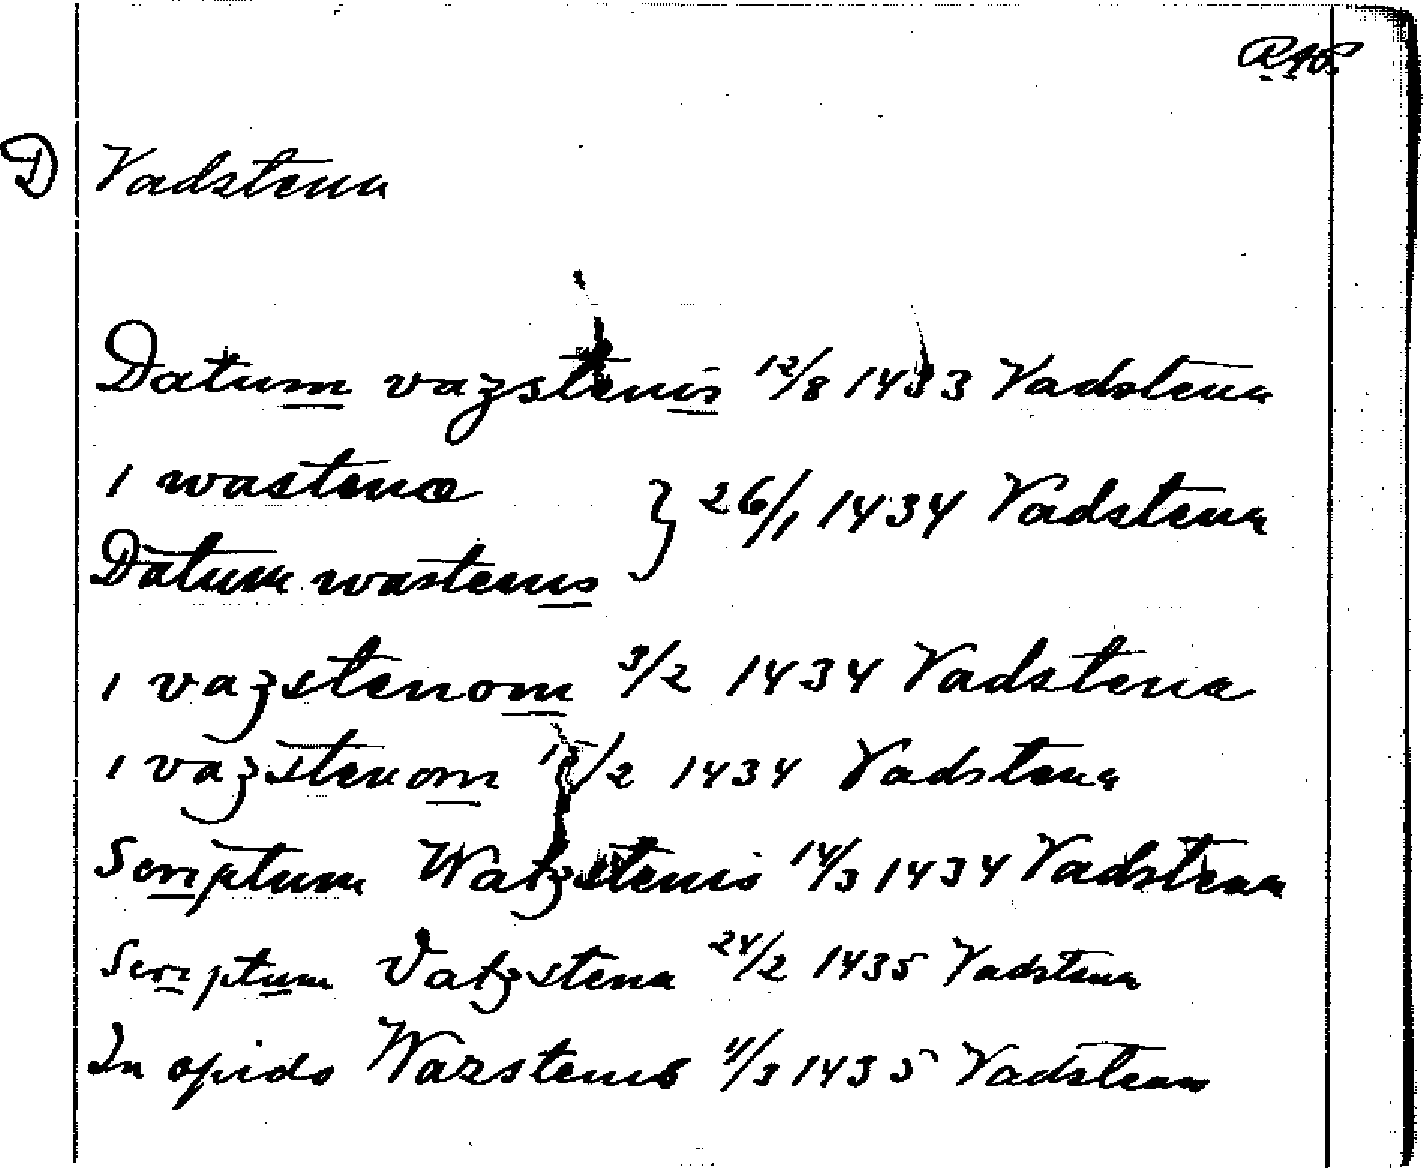 RAP.
D Vadstena
Datum vazstenis 12/8 1433 Vadstena
i wastenæ } 26/1 1434 Vadstena
Datum wastenis
i vazstenom 3/2 1434 Vadstena
i vazstenom 2/2 1434 Vadstena
Scriptum Watzstenis 14/3 1434 Vadstena
Scriptum Vatzstena 24/2 1435 Vadstena
In opido Wazstenis 11/3 1435 Vadstena